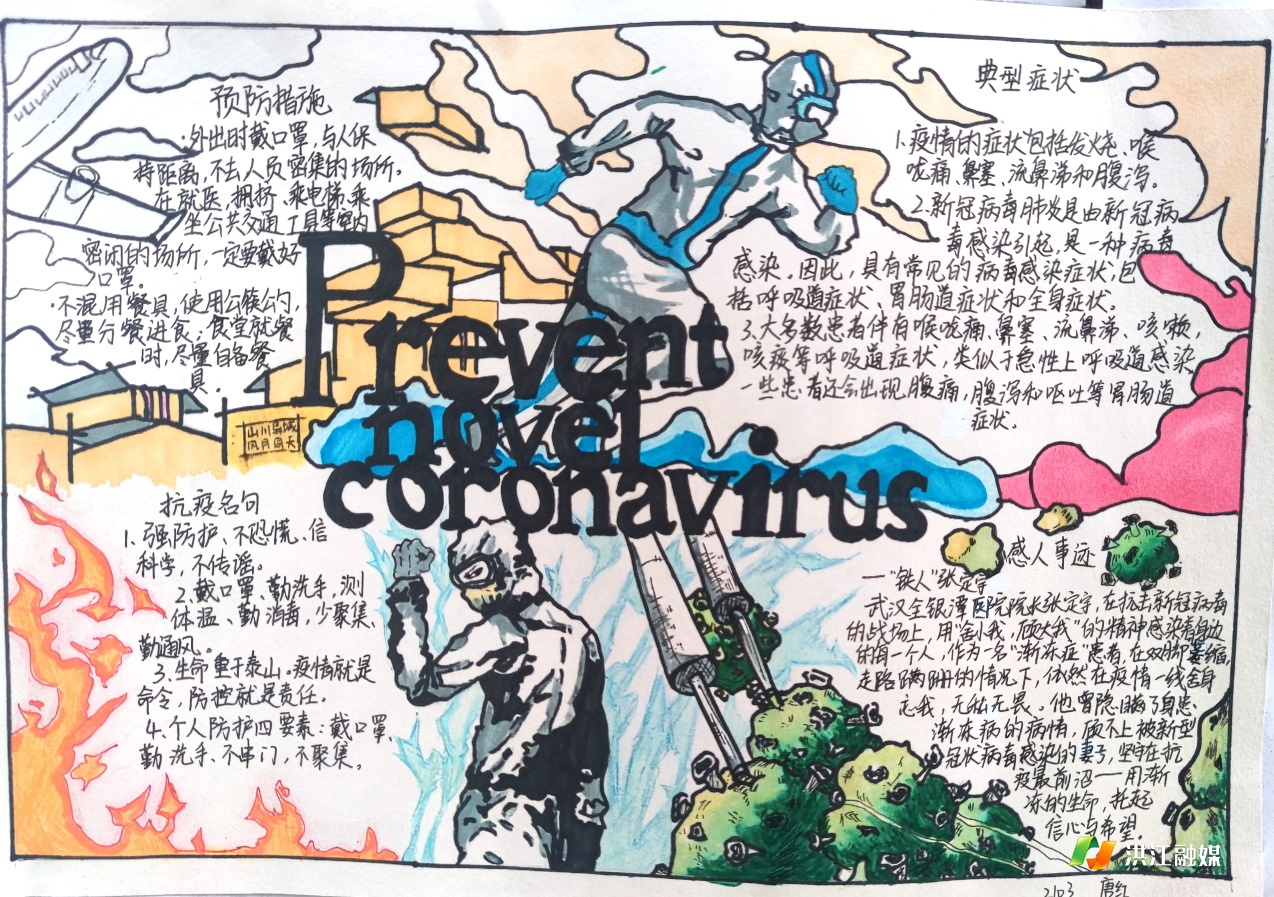 预防措施
·外出时戴口罩,与人保
持距离,不去人员密集的场所。
在就医、拥挤、乘电梯、乘
坐公共交通工具等室内
密闭的场所,一定要戴好
口罩。
·不混用餐具,使用公筷公勺,
尽量分餐进食,食堂就餐
时,尽量自备餐
具。
山川异域
风月同天
典型症状
1.疫情的症状包括发烧、喉
咙痛、鼻塞、流鼻涕和腹泻。
2.新冠病毒肺炎是由新冠病
毒感染引起,是一种病毒
感染。因此,具有常见的病毒感染症状,包
括呼吸道症状、胃肠道症状和全身症状。
3.大多数患者伴有喉咙痛、鼻塞、流鼻涕、咳嗽,
咳痰等呼吸道症状,类似于急性上呼吸道感染
一些患者还会出现腹痛,腹泻和呕吐等胃肠道
症状。
Prevent
novel
coronavirus
抗疫名句
1.强防护、不恐慌、信
科学,不传谣。
2.戴口罩、勤洗手,测
体温、勤消毒,少聚集、
勤通风。
3.生命重于泰山。疫情就是
命令,防控就是责任。
4.个人防护四要素:戴口罩、
勤洗手、不串门,不聚集。
感人事迹
—“铁人”张定宇
武汉金银潭医院院长张定宇,在抗击新冠病毒
的战场上,用“舍小我,顾大我”的精神感染着身边
的每一个人,作为一名“渐冻症”患者,在双脚萎缩,
走路蹒跚的情况下,依然在疫情一线舍身
忘我,无私无畏。他曾隐瞒了身患
渐冻病的病情,顾不上被新型
冠状病毒感染的妻子,坚守在抗
疫最前沿——用渐
冻的生命,托起
信心与希望。
洪江融媒
2103 唐红